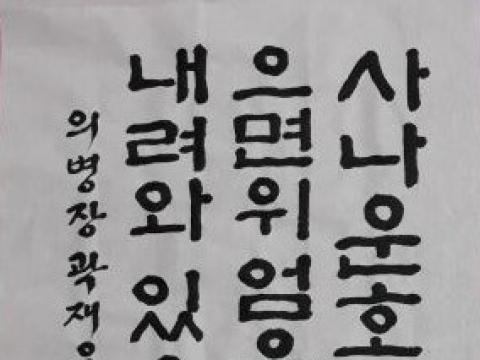 사나운호
으면위엄
내려와있
의병장곽재우